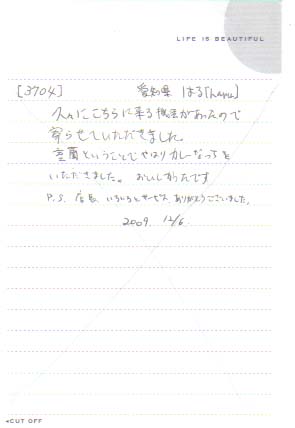 LIFE IS BEAUTIFUL
[3704] 愛知県 はる[haru]
久々にこちらに来る機会があったので
寄らせていただきました。
室蘭ということでやはりカレーなっとを
いただきました。おいしかったです
P.S. 店長 いろいろとサービス ありがとうございました。
2009. 12/6
◂CUT OFF